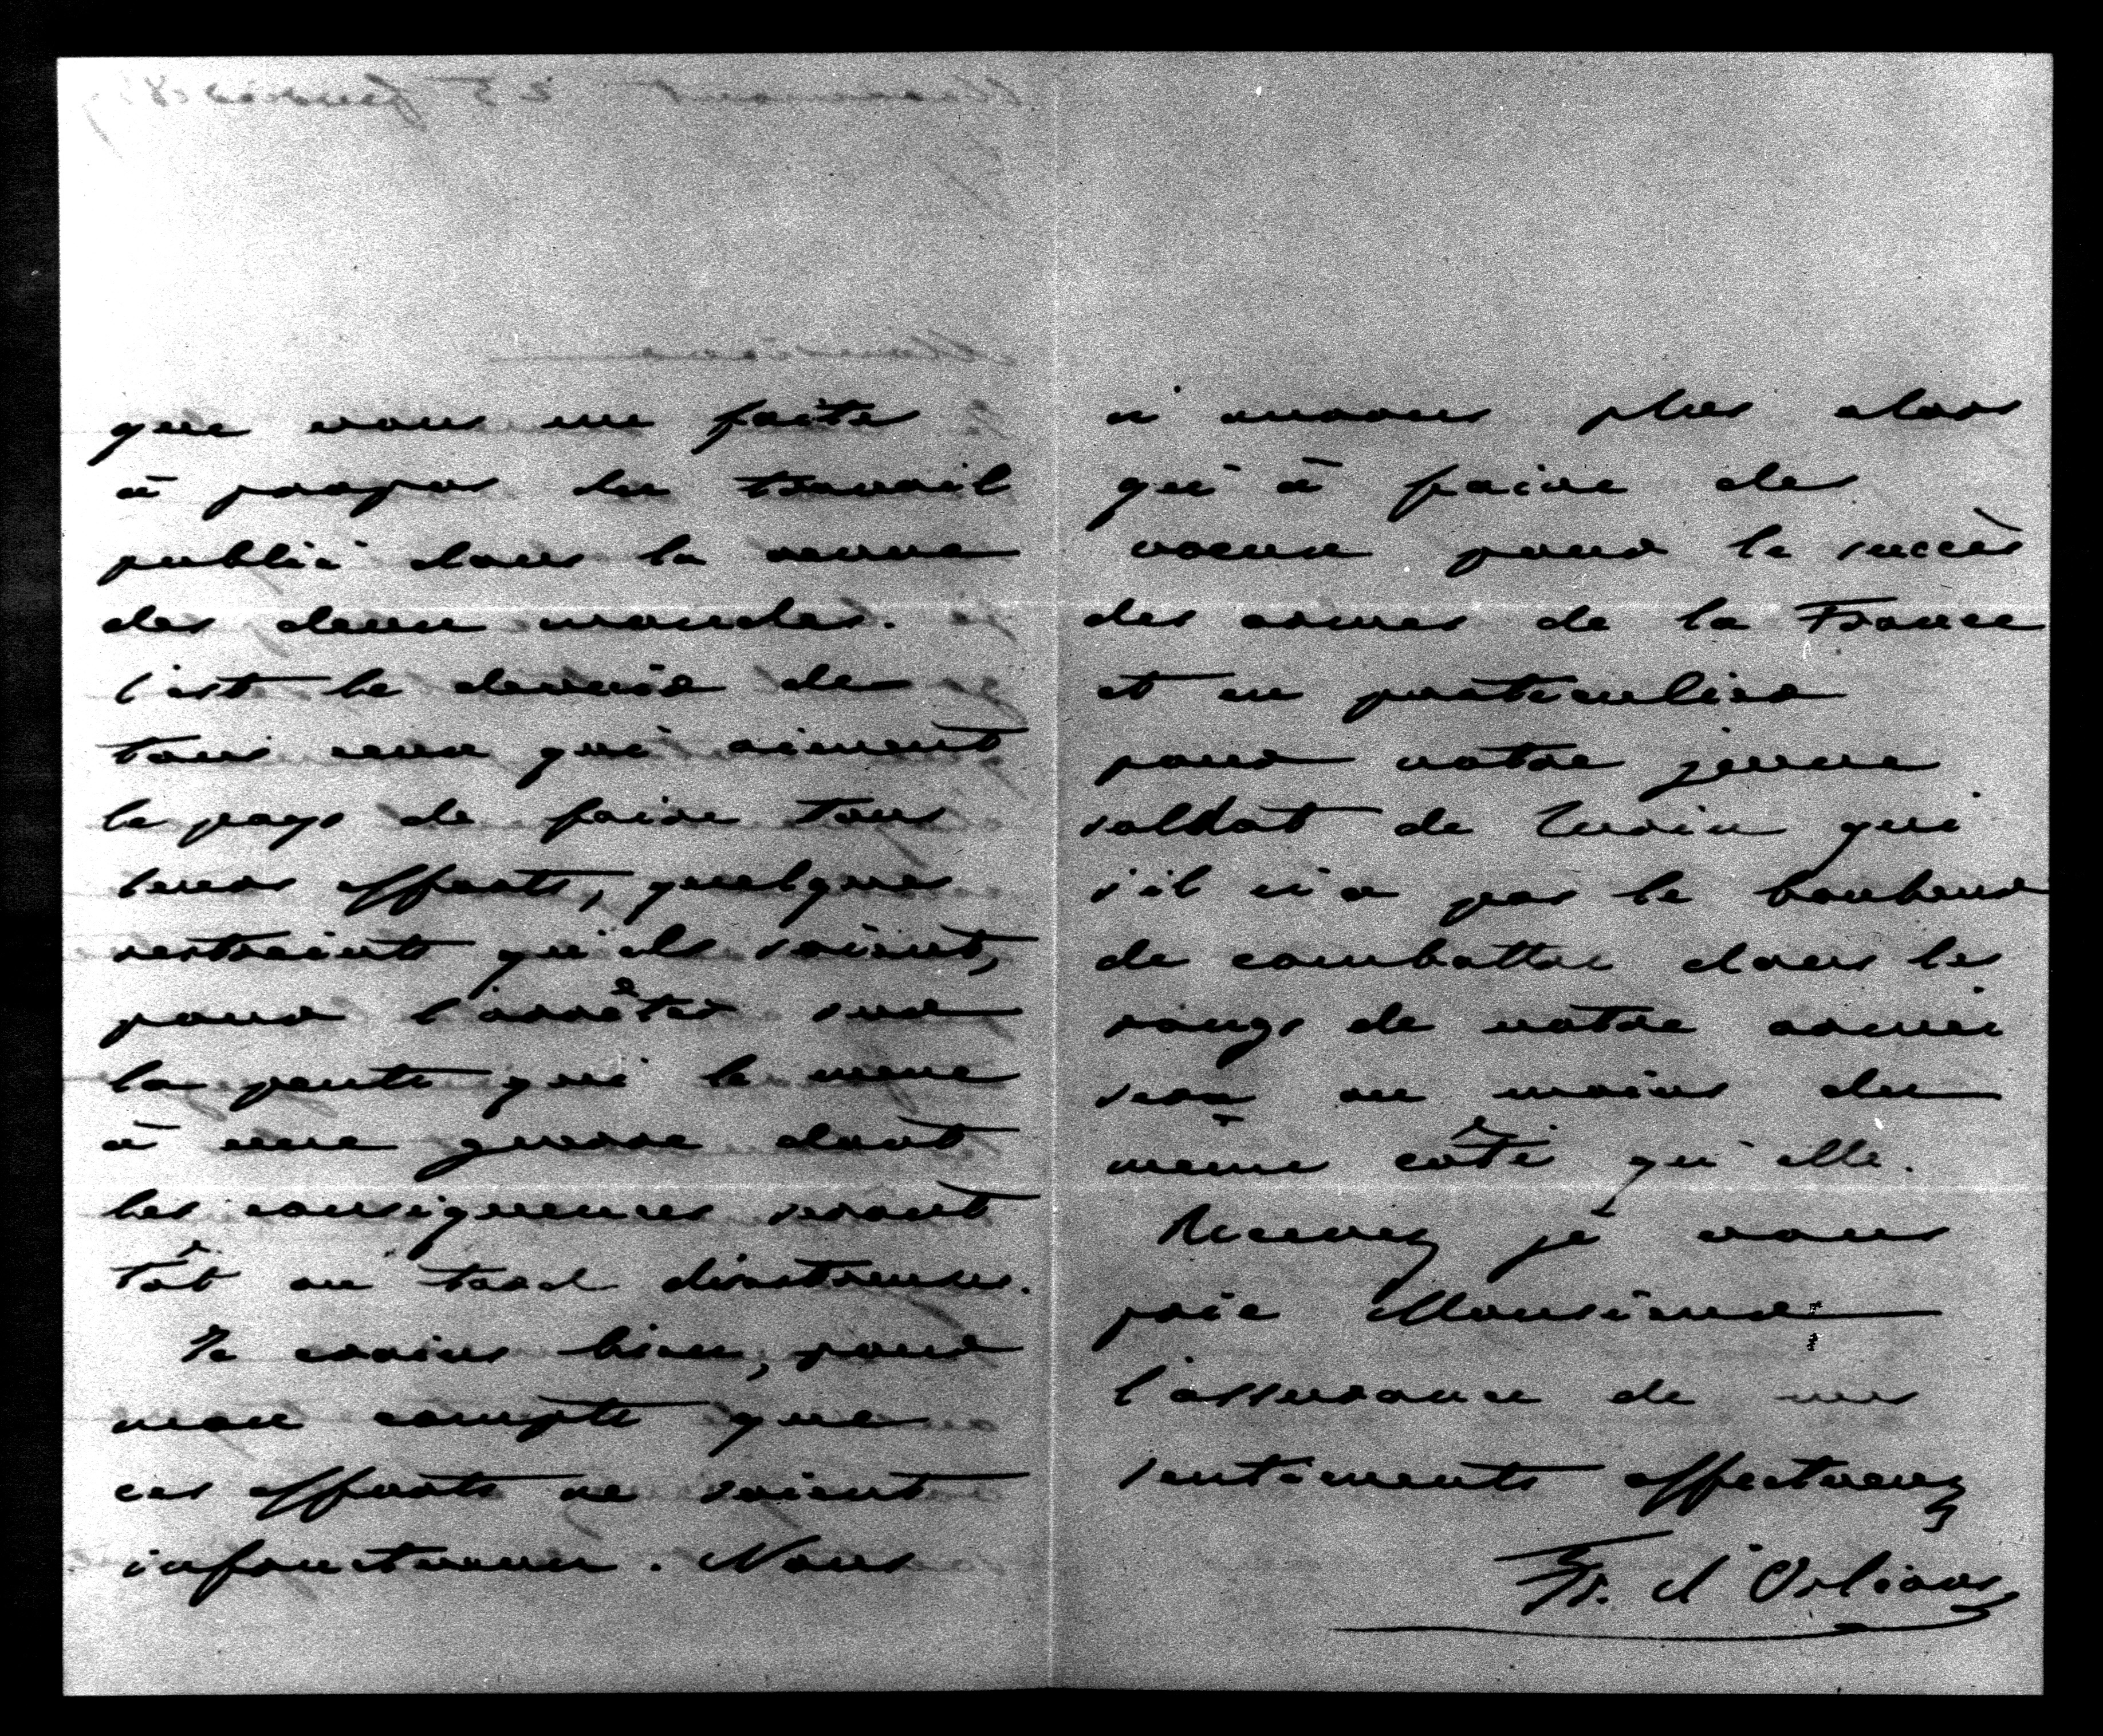 que vous me faites
à propos du travail
publié dans la revue
des deux mondes.
C'est le devoir de
tous ceux qui aiment
le pays de faire tous
leurs efforts, quelques
restreints qu'ils soient,
pour l'arrêter sur
la pente qui le mene
à une guerre dont
les consequences seront
tôt ou tard disastreuses.
Je crains bien, pour
mon compte que
ces efforts ne soient
infructueux. Nous
n'aurons plus alors
qu'à faire des
voeux pour le succès
des armes de la France
et en particulier
pour votre jeune
soldat de Turin qui
s'il n'a pas le bonheur
de combattre dans les
rangs de notre armée
sera au moins du
même côté qu'elle.
Recevez je vous
prie Monsieur
l'assurance de mes
sentiments affectueux
Fr. d'Orléans